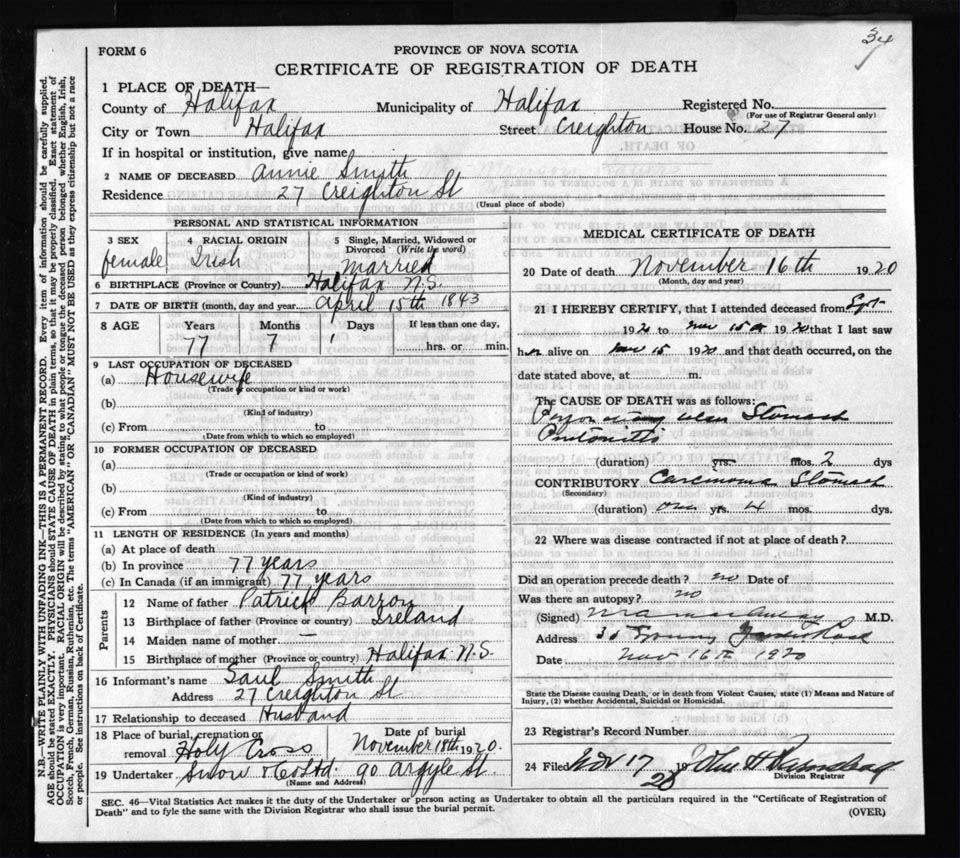 34
FORM 6
PROVINCE OF NOVA SCOTIA
CERTIFICATE OF REGISTRATION OF DEATH
1 PLACE OF DEATH—
County of Halifax Municipality of Halifax Registered No.
(For use of Registrar General only)
City or Town Halifax Street Creighton House No. 27
If in hospital or institution, give name
2 NAME OF DECEASED Annie Smith
Residence 27 Creighton St
(Usual place of abode)
PERSONAL AND STATISTICAL INFORMATION
3 SEX female
4 RACIAL ORIGIN Irish
5 Single, Married, Widowed or Divorced (Write the word) Married
6 BIRTHPLACE (Province or Country) Halifax N.S.
7 DATE OF BIRTH (month, day and year) April 15th 1843
8 AGE Years Months Days If less than one day,
77 7 1 hrs. or min.
9 LAST OCCUPATION OF DECEASED
(a) Housewife
(Trade or occupation or kind or work)
(b)
(Kind of industry)
(c) From to
(Date from which to which so employed)
10 FORMER OCCUPATION OF DECEASED
(a)
(Trade or occupation or kind of work)
(b)
(Kind of industry)
(c) From to
(Date from which to which so employed)
11 LENGTH OF RESIDENCE (In years and months)
(a) At place of death
(b) In province 77 years
(c) In Canada (if an immigrant) 77 years
Parents
12 Name of father Patrick Barron
13 Birthplace of father (Province or country) Ireland
14 Maiden name of mother —
15 Birthplace of mother (Province or country) Halifax N.S.
16 Informant's name Saul Smith
Address 27 Creighton St
17 Relationship to deceased Husband
18 Place of burial, cremation or removal Holy Cross
Date of burial November 18th 1920.
19 Undertaker Snow & Co Ltd. 90 Argyle St.
(Name and Address)
MEDICAL CERTIFICATE OF DEATH
20 Date of death November 16th 1920
(Month, day and year)
21 I HEREBY CERTIFY, that I attended deceased from Sept
1920 to Nov 15th 1920 that I last saw
her alive on Nov 15 1920 and that death occurred, on the
date stated above, at m.
The CAUSE OF DEATH was as follows:
Stomach
Peritonitis
(duration) yrs. mos. 2 dys
CONTRIBUTORY Carcinoma Stomach
(Secondary)
(duration) one yrs. 4 mos. dys.
22 Where was disease contracted if not at place of death?
Did an operation precede death? no Date of
Was there an autopsy? no
(Signed) M.D.
Address
Date Nov 16th 1920
State the Disease causing Death, or in death from Violent Causes, state (1) Means and Nature of
Injury, (2) whether Accidental, Suicidal or Homicidal.
23 Registrar's Record Number
24 Filed Nov 17 1920 John H
Division Registrar
SEC. 46—Vital Statistics Act makes it the duty of the Undertaker or person acting as Undertaker to obtain all the particulars required in the "Certificate of Registration of
Death" and to fyle the same with the Division Registrar who shall issue the burial permit.
(OVER)
N.B.—WRITE PLAINLY WITH UNFADING INK—THIS IS A PERMANENT RECORD. Every item of information should be carefully supplied.
AGE should be stated EXACTLY. PHYSICIANS should STATE CAUSE OF DEATH in plain terms, so that it may be properly classified. Exact statement of
OCCUPATION is very important. RACIAL ORIGIN will be described by stating to what people or tongue the deceased person belonged whether English, Irish,
Scotch, French, German, Russian, Ruthenian, etc. The terms "AMERICAN" OR "CANADIAN" MUST NOT BE USED as they express citizenship but not a race
or people. See instructions on back of Certificate.